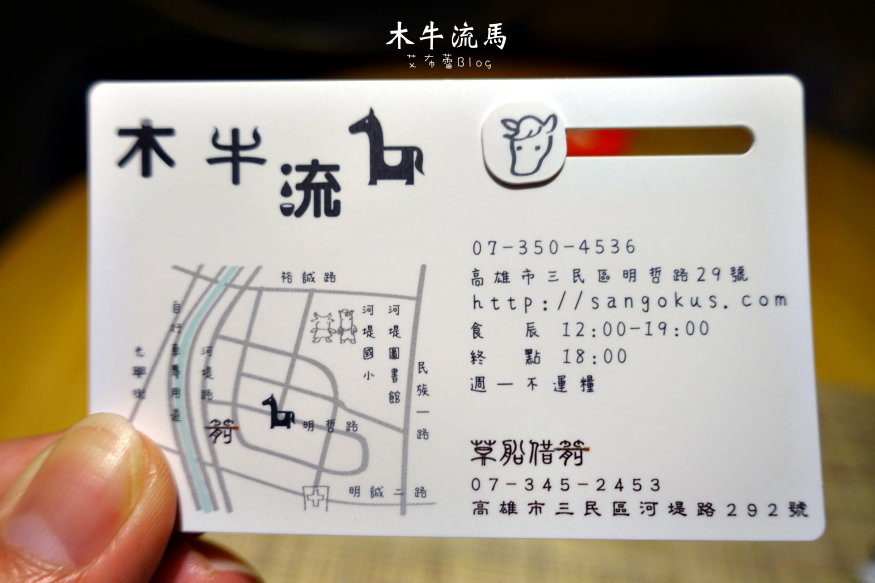 木牛流馬
艾布蕾Blog
木牛流
07-350-4536
高雄市三民區明哲路29號
http://sangokus.com
食 辰 12:00-19:00
終 點 18:00
週一不運糧
草船借箭
07-345-2453
高雄市三民區河堤路292號
裕誠路
自行車專用道
河堤路
光華街
河堤國小
河堤圖書館
民族一路
箭
明哲路
明誠二路